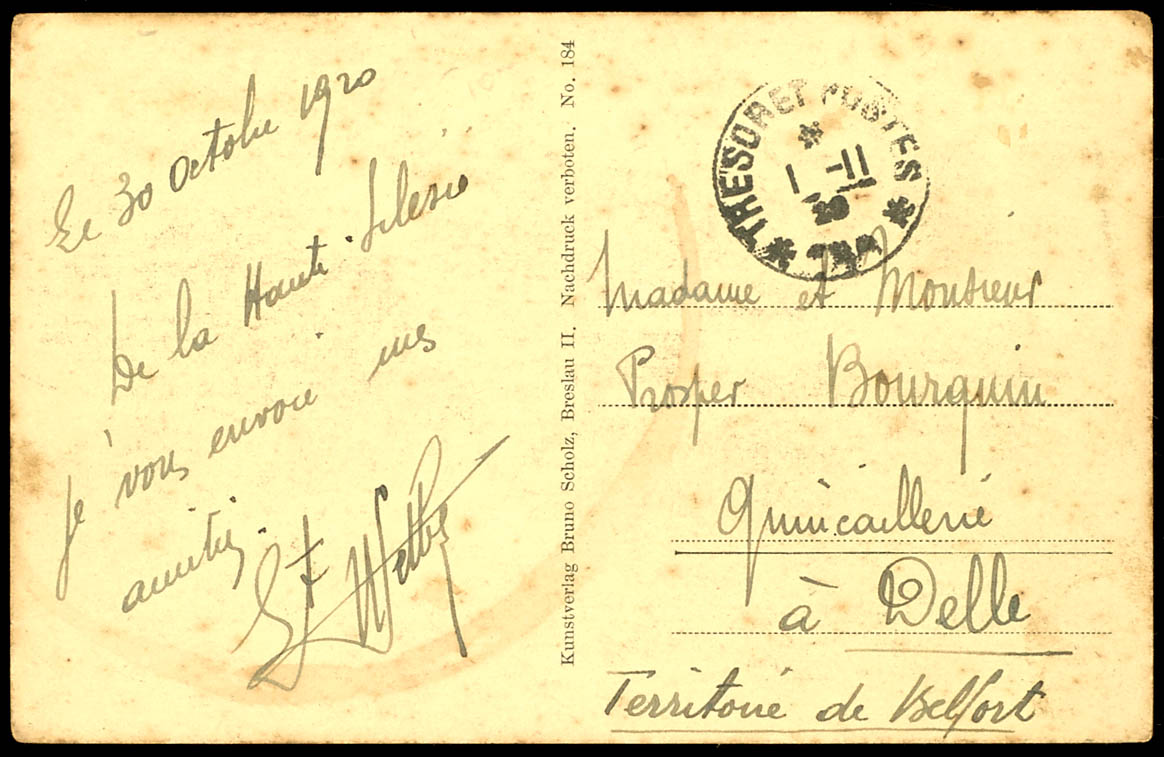 Le 30 Octobre 1920
De la Haute Silésie
Je vous envoie mes
amitiés.
Kunstverlag Bruno Scholz, Breslau II. Nachdruck verboten. No. 184
* THESOR ET POSTES *
*
1 -11
20
Madame et Monsieur
Prosper Bourquin
Quincaillerie
à Delle
Territoire de Belfort